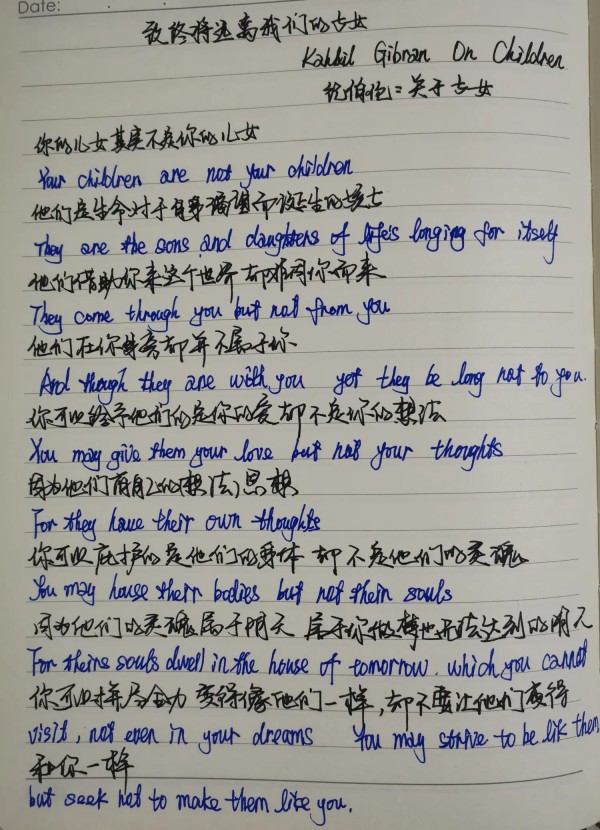 Date:
致终将远离我们的子女
Kahlil Gibran On Children
纪伯伦：关于子女
你的儿女其实不是你的儿女
Your children are not your children
他们是生命对于自身渴望而诞生的孩子
They are the sons and daughters of life's longing for itself
他们借助你来这个世界 却非因你而来
They come through you but not from you
他们在你身旁却并不属于你
And though they are with you yet they be long not to you.
你可以给予他们的是你的爱却不是你的想法
You may give them your love but not your thoughts
因为他们有自己的想法）思想
For they have their own thoughts
你可以庇护的是他们的身体 却不是他们的灵魂
You may house their bodies but not their souls
因为他们的灵魂属于明天 属于你做梦也无法达到的明天
For theirs souls dwell in the house of tomorrow. which you cannot
你可以拼尽全力 变得像他们一样，却不要让他们变得
visit, not even in your dreams You may strive to be lik them
和你一样
but seek not to make them like you.